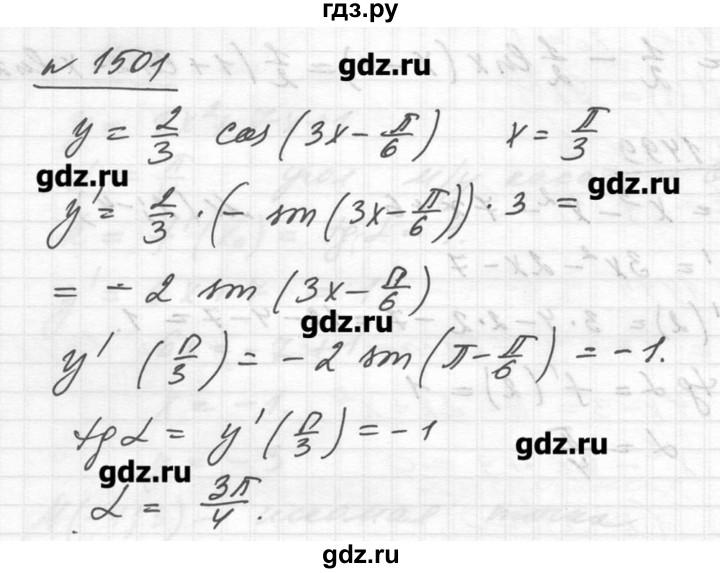 гдз.ру
№ 1501
gdz.ru
y = 2/3 cos (3x - π/6) x = π/3
gdz.ru
gdz.ru
y' = 2/3 · (- sin (3x - π/6)) · 3 =
= - 2 sin (3x - π/6)
gdz.ru
y' (π/3) = - 2 sin (π - π/6) = - 1.
tg α = y' (π/3) = - 1
gdz.ru
gdz.ru
α = 3π/4.
gdz.ru